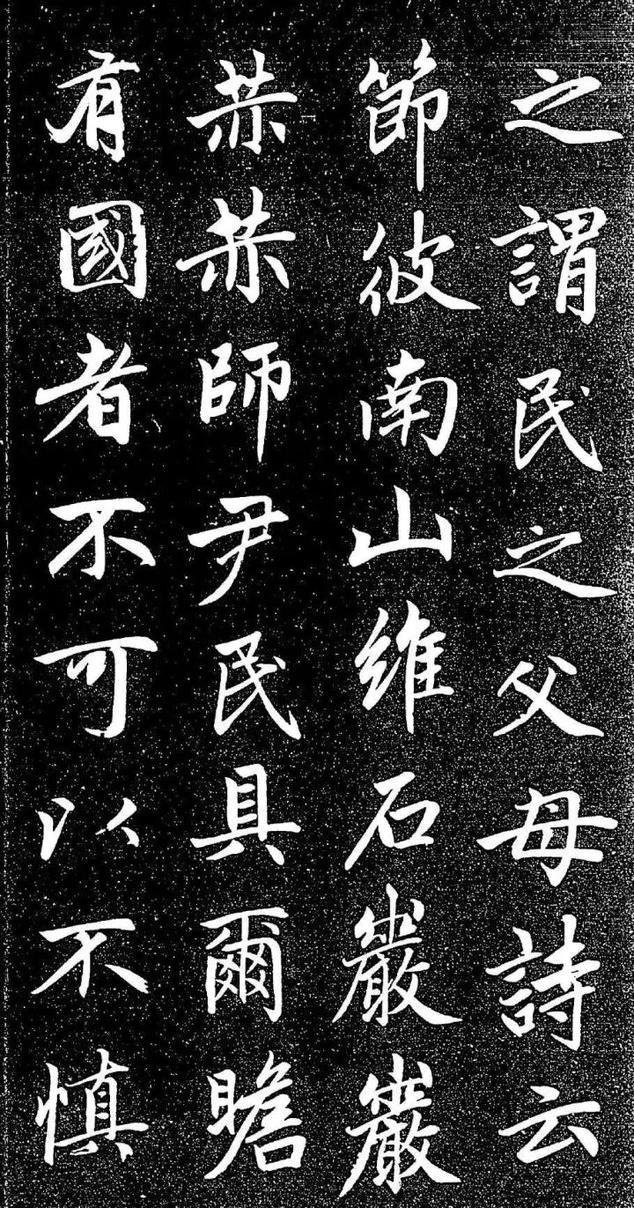 之謂民之父母詩云
節彼南山維石巖巖
赫赫師尹民具爾瞻
有國者不可以不慎